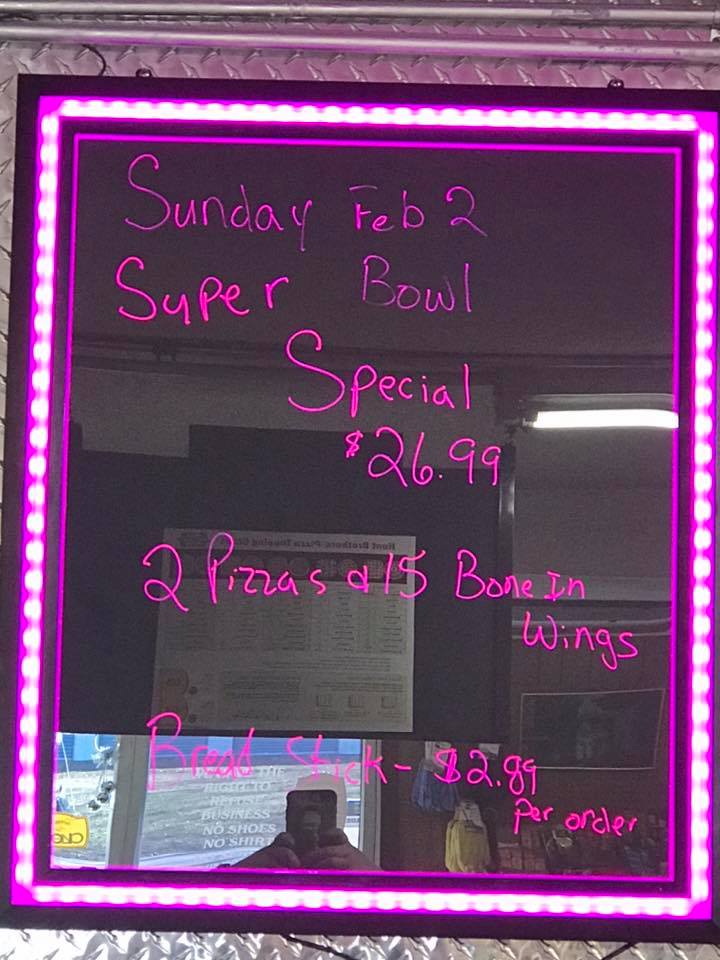 Sunday Feb 2
Super Bowl
Special
$26.99
Hunt Brothers Pizza Topping
2 Pizzas & 15 Bone In
Wings
Bread Stick - $2.89
Per order
THE
RIGHT TO
REFUSE
BUSINESS
NO SHOES
NO SHIRT